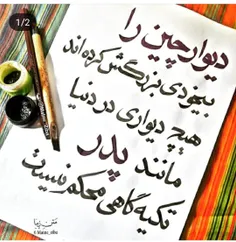 1/2
دیوار چین را
بیخودی بزرگش کرده اند
هیچ دیواری در دنیا
مانند پدر
تکیه گاهی محکم نیست
متن زیبا